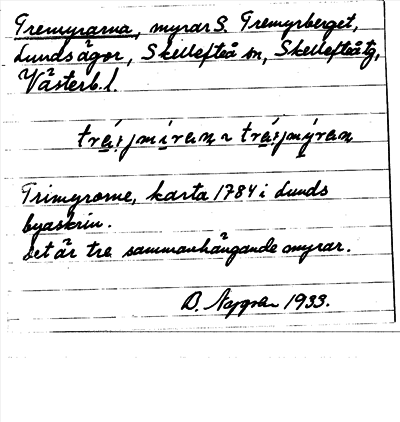 Tremyrarna, myrar S. Tremyrberget,
Lunds ägor, Skellefteå sn, Skellefteå tg,
Västerb. l.
Trimyrorne, karta 1784 i Lunds
byaskrin.
Det är tre sammanhängande myrar.
B. 1933.